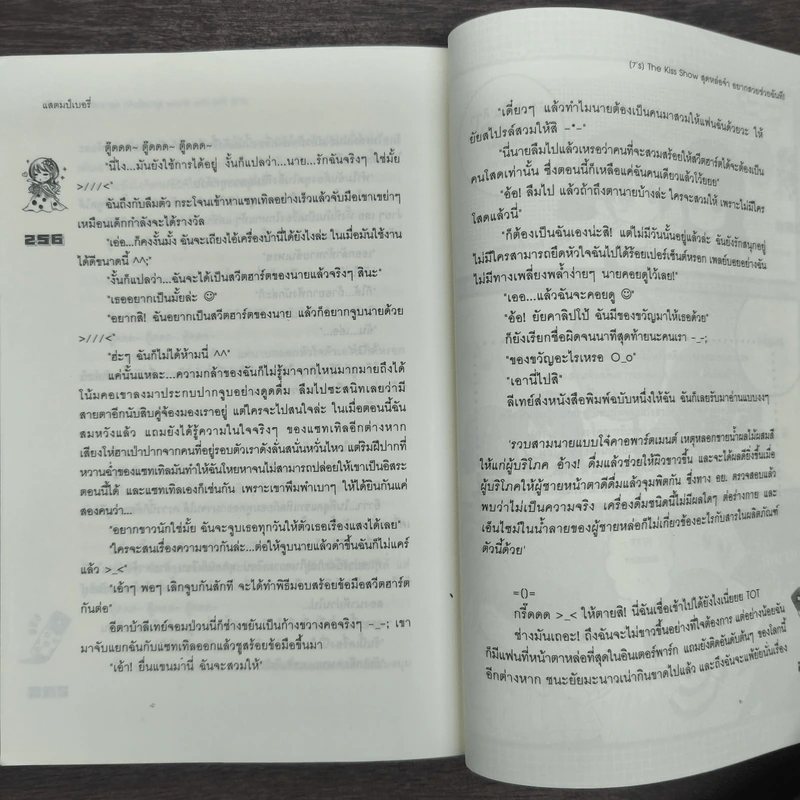 แสตมป์เบอรี่
ตู๊ดดด~ ตู๊ดดด~ ตู๊ดดด~
"นี่ไง...มันยังใช้การได้อยู่ งั้นก็แปลว่า...นาย...รักฉันจริงๆ ใช่มั้ย
>///<"
ฉันถึงกับลืมตัว กระโจนเข้าหาแซทเทิลอย่างเร็วแล้วจับมือเขาเขย่าๆ
เหมือนเด็กกำลังจะได้รางวัล
256
"เอ่อ...ก็คงงั้นมั้ง ฉันจะเถียงไอ้เครื่องบ้านี่ได้ยังไงล่ะ ในเมื่อมันใช้งาน
ได้ดีขนาดนี้ ^^;"
"งั้นก็แปลว่า...ฉันจะได้เป็นสวีตฮาร์ตของนายแล้วจริงๆ สินะ"
"เธออยากเป็นมั้ยล่ะ ☺"
"อยากสิ! ฉันอยากเป็นสวีตฮาร์ตของนาย แล้วก็อยากจูบนายด้วย
>///<"
"ฮ่ะๆ ฉันก็ไม่ได้ห้ามนี่ ^^"
แค่นั้นแหละ...ความกล้าของฉันก็ไม่รู้มาจากไหนมากมายถึงได้
โน้มคอเขาลงมาประกบปากจูบอย่างดูดดื่ม ลืมไปซะสนิทเลยว่ามี
สายตาอีกนับสิบคู่จ้องมองเราอยู่ แต่ใครจะไปสนใจล่ะ ในเมื่อตอนนี้ฉัน
สมหวังแล้ว แถมยังได้รู้ความในใจจริงๆ ของแซทเทิลอีกต่างหาก
เสียงโห่ฮาเป่าปากจากคนที่อยู่รอบตัวเราดังลั่นสนั่นหวั่นไหว แต่ริมฝีปากที่
หวานฉ่ำของแซทเทิลมันทำให้ฉันโหยหาจนไม่สามารถปล่อยให้เขาเป็นอิสระ
ตอนนี้ได้ และแซทเทิลเองก็เช่นกัน เพราะเขาพึมพำเบาๆ ให้ได้ยินกันแค่
สองคนว่า...
"อยากขาวนักใช่มั้ย ฉันจะจูบเธอทุกวันให้ตัวเธอเรืองแสงได้เลย"
"ใครจะสนเรื่องความขาวกันล่ะ...ต่อให้จูบนายแล้วดำขึ้นฉันก็ไม่แคร์
แล้ว >_<"
"เอ้าๆ พอๆ เลิกจูบกันสักที จะได้ทำพิธีมอบสร้อยข้อมือสวีตฮาร์ต
กันต่อ"
อีตาบ้าลีเทย์จอมป่วนนี่ก็ช่างขยันเป็นก้างขวางคอจริงๆ -_-; เขา
มาจับแยกฉันกับแซทเทิลออกแล้วชูสร้อยข้อมือขึ้นมา
"เอ้า! ยื่นแขนมานี่ ฉันจะสวมให้"
(7's) The Kiss Show สุดหล่อจ๋า อยากสวยช่วยฉันที!
"เดี๋ยวๆ แล้วทำไมนายต้องเป็นคนมาสวมให้แฟนฉันด้วยวะ ให้
ยัยสไปรส์สวมให้สิ -*-"
"นี่นายลืมไปแล้วเหรอว่าคนที่จะสวมสร้อยให้สวีตฮาร์ตได้จะต้องเป็น
คนโสดเท่านั้น ซึ่งตอนนี้ก็เหลือแค่ฉันคนเดียวแล้วโว้ยยย"
"อ้อ! ลืมไป แล้วถ้าถึงตานายบ้างล่ะ ใครจะสวมให้ เพราะไม่มีใคร
โสดแล้วนี่"
"ก็ต้องเป็นฉันเองน่ะสิ! แต่ไม่มีวันนั้นอยู่แล้วล่ะ ฉันยังรักสนุกอยู่
ไม่มีใครสามารถยึดหัวใจฉันไปได้ร้อยเปอร์เซ็นต์หรอก เพลย์บอยอย่างฉัน
ไม่มีทางเพลี่ยงพล้ำง่ายๆ นายคอยดูไว้เลย!"
"เออ...แล้วฉันจะคอยดู ☺"
"อ้อ! ยัยคาลิปโป้ ฉันมีของขวัญมาให้เธอด้วย"
ก็ยังเรียกชื่อผิดจนนาทีสุดท้ายนะคนเรา -_-;
"ของขวัญอะไรเหรอ O_o"
"เอานี่ไปสิ"
ลีเทย์ส่งหนังสือพิมพ์ฉบับหนึ่งให้ฉัน ฉันก็เลยรับมาอ่านแบบงงๆ
'รวบสามนายแบบใจ๋คาอพาร์ตเมนต์ เหตุหลอกขายน้ำผลไม้ผสมสี
ให้แก่ผู้บริโภค อ้าง! ดื่มแล้วช่วยให้ผิวขาวขึ้น และจะได้ผลดียิ่งขึ้นเมื่อ
ผู้บริโภคให้ผู้ชายหน้าตาดีดื่มแล้วจุมพิตกัน ซึ่งทาง อย. ตรวจสอบแล้ว
พบว่าไม่เป็นความจริง เครื่องดื่มชนิดนี้ไม่มีผลใดๆ ต่อร่างกาย และ
เอ็นไซม์ในน้ำลายของผู้ชายหล่อก็ไม่เกี่ยวข้องอะไรกับสารในผลิตภัณฑ์
ตัวนี้ด้วย'
=()=
กรี๊ดดด >_< ให้ตายสิ! นี่ฉันเชื่อเข้าไปได้ยังไงเนี่ยยย TOT
ช่างมันเถอะ! ถึงฉันจะไม่ขาวขึ้นอย่างที่ใจต้องการ แต่อย่างน้อยฉัน
ก็มีแฟนที่หน้าตาหล่อที่สุดในอินเตอร์พาร์ก แถมยังติดอันดับต้นๆ ของโลกนี้
อีกต่างหาก ชนะยัยมะนาวเน่ากินขาดไปแล้ว และถึงฉันจะแพ้ยัยนั่นเรื่อง